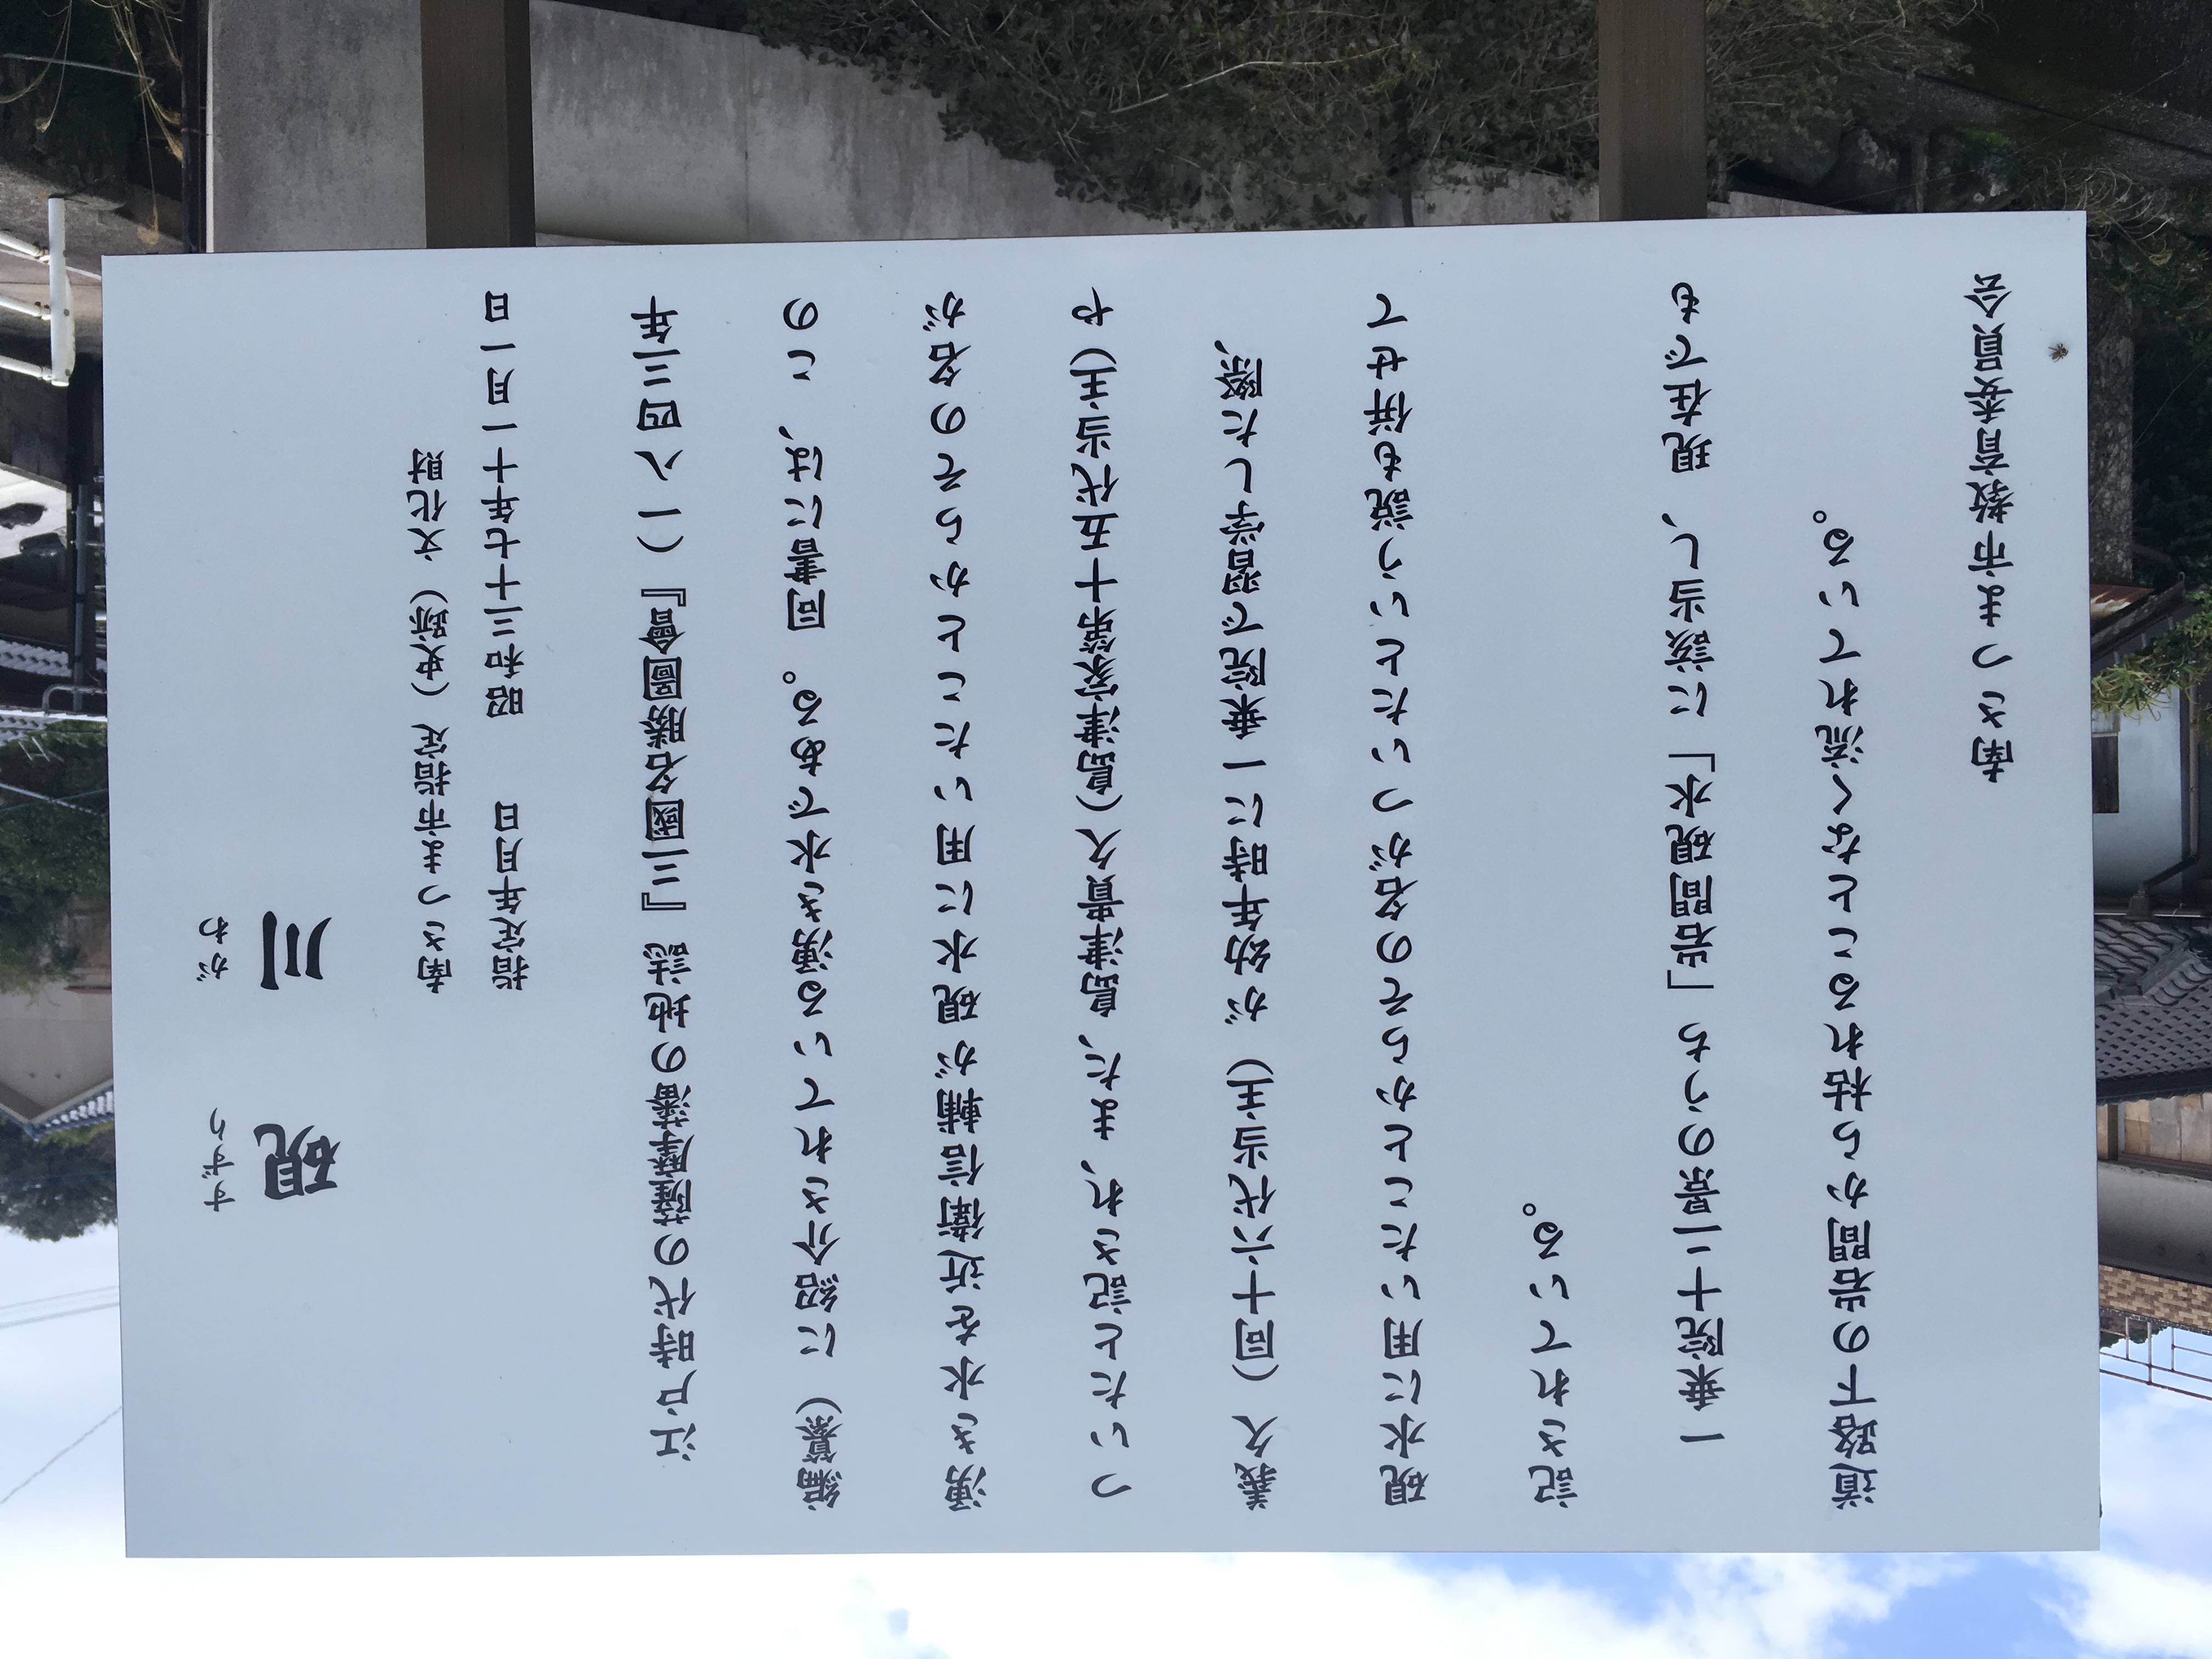 硯川
すずりがわ
南さつま市指定（史跡）文化財
指定年月日　昭和三十七年十一月一日
江戸時代の薩摩藩の地誌『三國名勝圖會』（一八四三年
編纂）に紹介されている湧き水である。同書には、この
湧き水を近衛信輔が硯水に用いたことからその名が
ついたと記され、また、島津貴久（島津家第十五代当主）や
義久（同十六代当主）が幼年時に一乗院で習学した際、
硯水に用いたことからその名がついたという説も併せて
記されている。
一乗院十二景のうち「岩間硯水」に該当し、現在でも
道路下の岩間から枯れることなく流れている。
南さつま市教育委員会